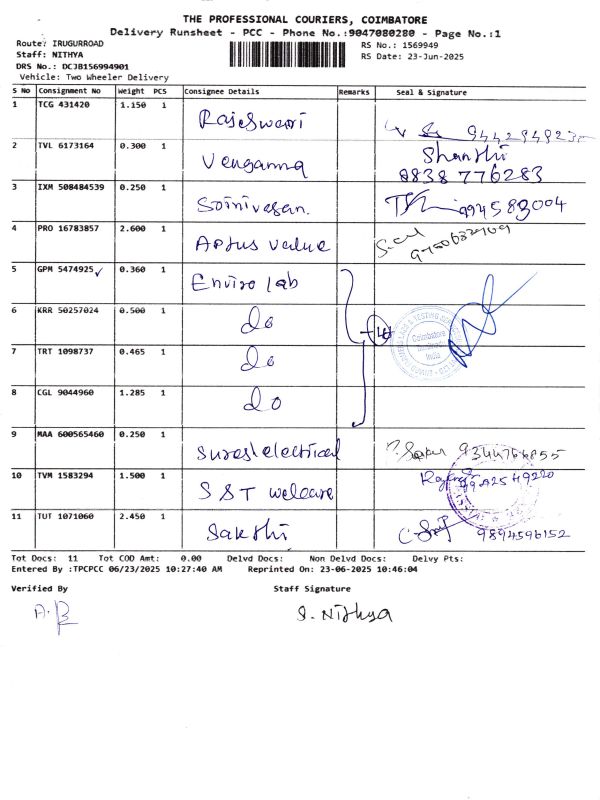 THE PROFESSIONAL COURIERS, COIMBATORE
Delivery Runsheet - PCC - Phone No.:9047080280 - Page No.:1
Route: IRUGURROAD
Staff: NITHYA
DRS No.: DCJB156994901
Vehicle: Two Wheeler Delivery
RS No.: 1569949
RS Date: 23-Jun-2025
S No Consignment No Weight PCS Consignee Details Remarks Seal & Signature
1 TCG 431420 1.150 1 Rajeswari
2 TVL 6173164 0.300 1 Vengamma Shanthi
9838 776283
3 IXM 508484539 0.250 1 Srinivasan. 994583004
4 PRO 16783857 2.600 1 Aptus value
5 GPM 5474925 0.360 1 Enviro lab
6 KRR 50257024 0.500 1 do
7 TRT 1098737 0.465 1 do
8 CGL 9044960 1.285 1 do
Coimbatore
India
9 MAA 600565460 0.250 1 Sures electrical 9344764855
10 TVM 1583294 1.500 1 SST welcare
11 TUT 1071060 2.450 1 Sakthi 9894596152
Tot Docs: 11 Tot COD Amt: 0.00 Delvd Docs: Non Delvd Docs: Delvy Pts:
Entered By :TPCPCC 06/23/2025 10:27:40 AM Reprinted On: 23-06-2025 10:46:04
Verified By Staff Signature
S. Nithya